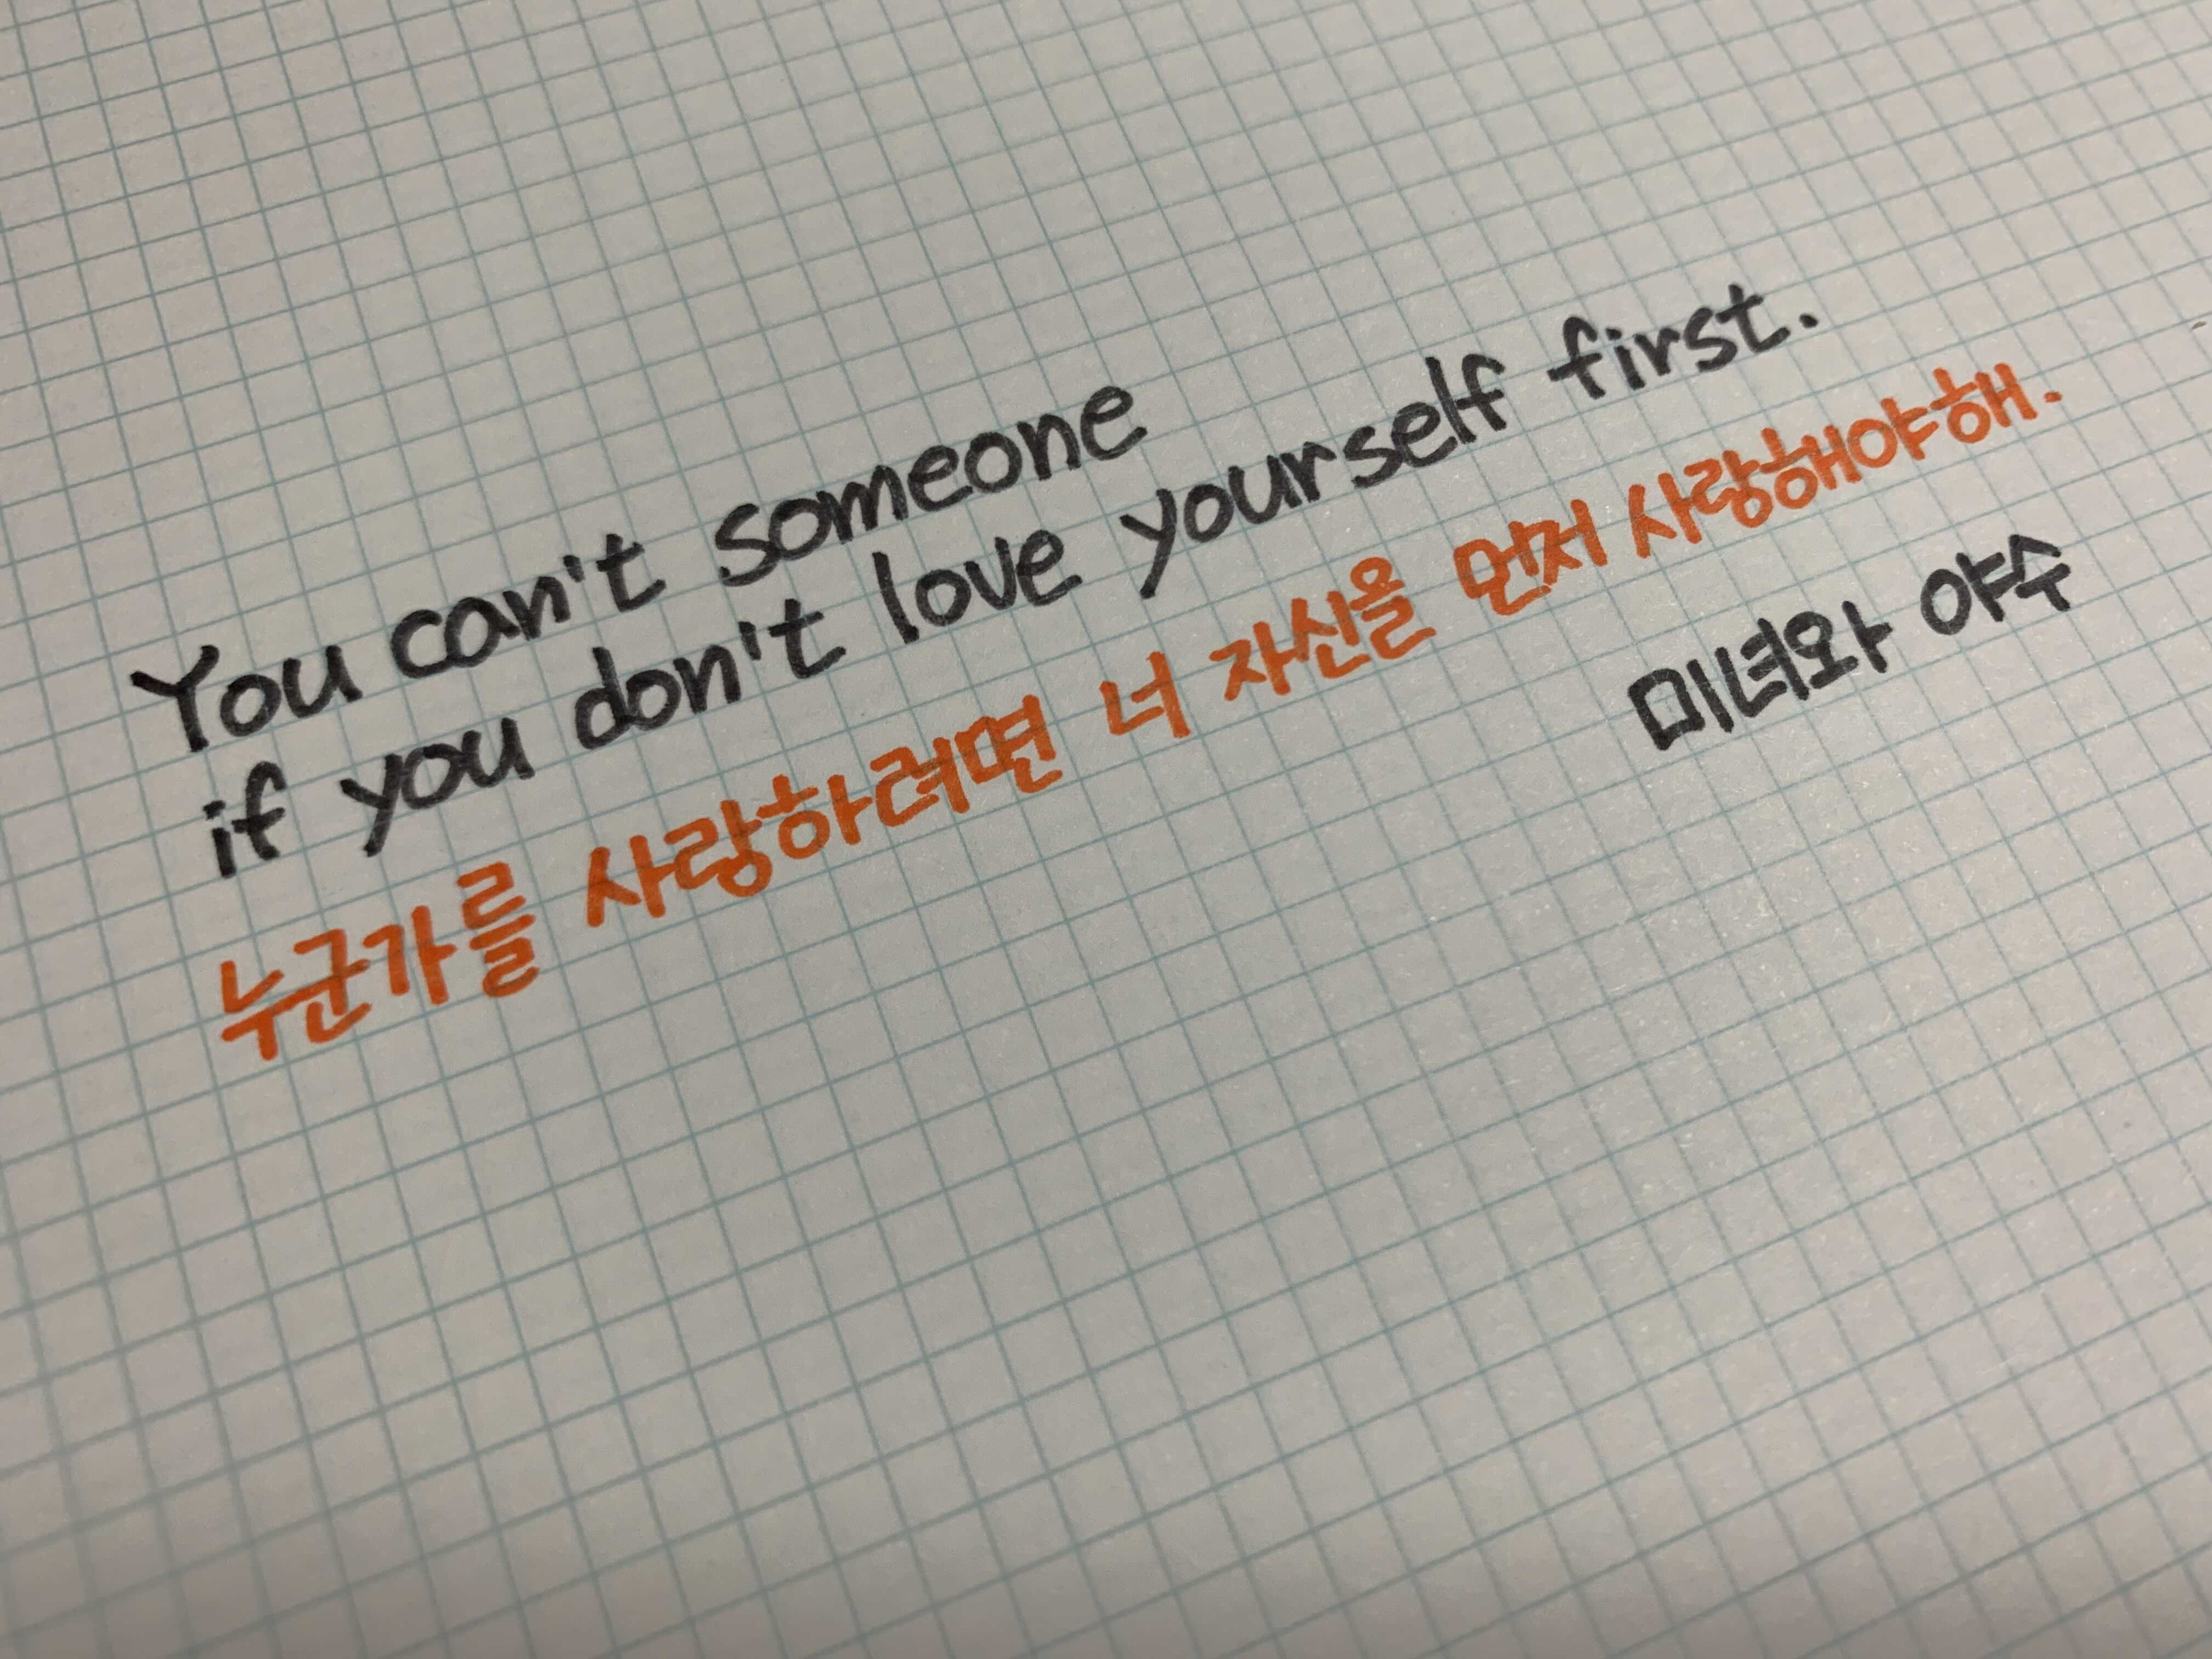 You can't someone
if you don't love yourself first.
누군가를 사랑하려면 너 자신을 먼저 사랑해야해.
미녀와 야수